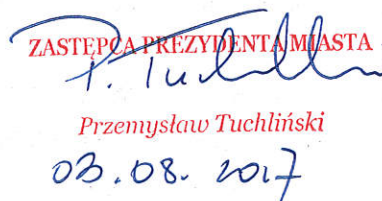 ZASTĘPCA PREZYDENTA MIASTA
P. Tuchliński
Przemysław Tuchliński
03.08.2017